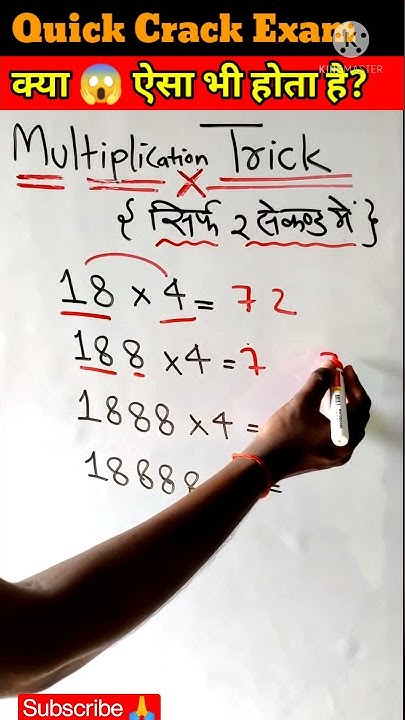 Quick Crack Exam
KINEMASTER
क्या 😱 ऐसा भी होता है?
Multiplication Trick
{ सिर्फ 2 सेकण्ड में }
18 × 4 = 72
188 × 4 = 7
1888 × 4 =
18888 =
Subscribe 🙏